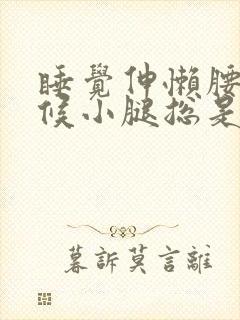 睡覺伸懶腰
候小腿总是
暮訴莫言離